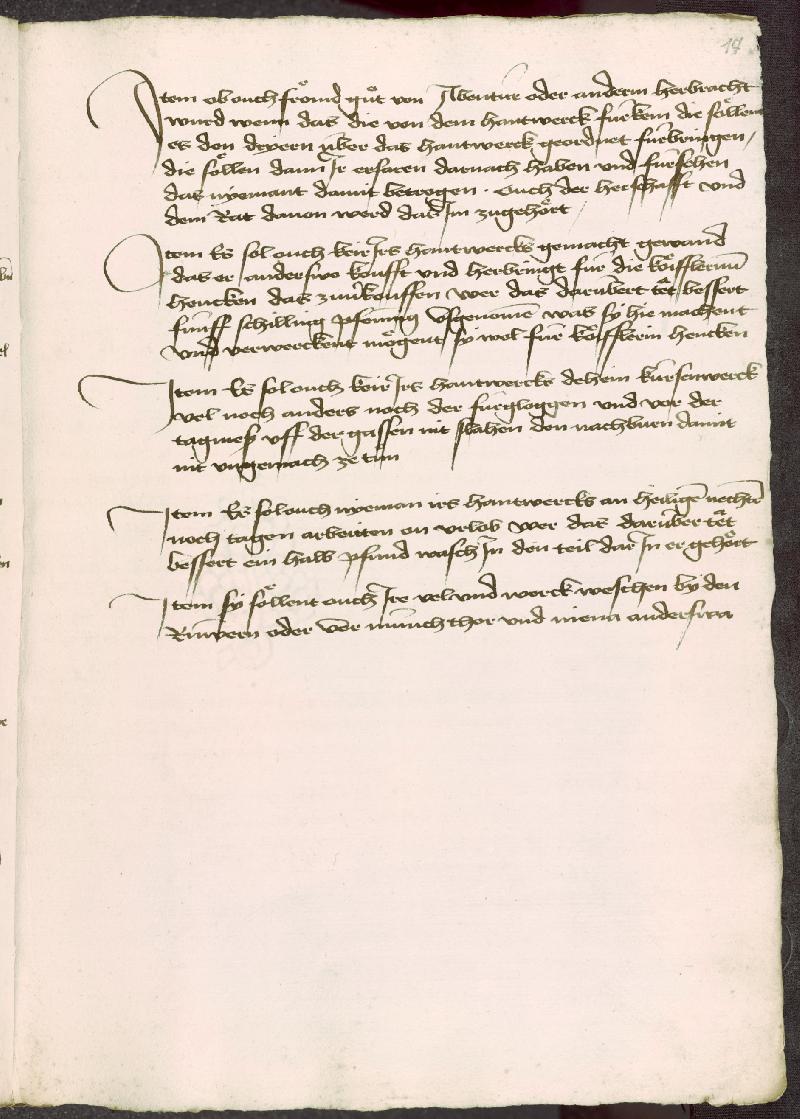 14
Item ob ouch frömd gůt von Abentür oder anderm herbracht
wurd wenn das die von dem hantwerck fürkem die söllent
es den dryern über das hantwerck geordnet fürbringen /
die söllen dann Ir erfaren darnach haben und fürsehen
das nyemant damit betrogen . Ouch der herschafft und
dem Rat dauon werd das Im zugehört
Item Es sol ouch keir Irs hantwercks gemacht gewand
das er anderswo koufft und herbringt für die köifflerinn
hencken das zuuerkouffen wer das darübert tët bessert
fünff schilling pfenning Usgenomē was sy hie machent
und verwerckent mögent sy wol für köifflerin hencken
Item Es sol ouch keir Irs hantwercks dehein kürsenwerck
vel noch anders noch der fürgloggen und vor der
tagmeß uff der gassen nit slahen den nachburn damit
nit ungemach ze tůn
Item Es sol ouch nyeman irs hantwercks an heiligē nechtē
noch tagen arbeiten on urlob wer das darüber tët
bessert ein halb pfund wachs In den teil dar In er gehört
Item sy söllent ouch Ire vel und werck weschen by den
oder vor münch thor und niena anderswa